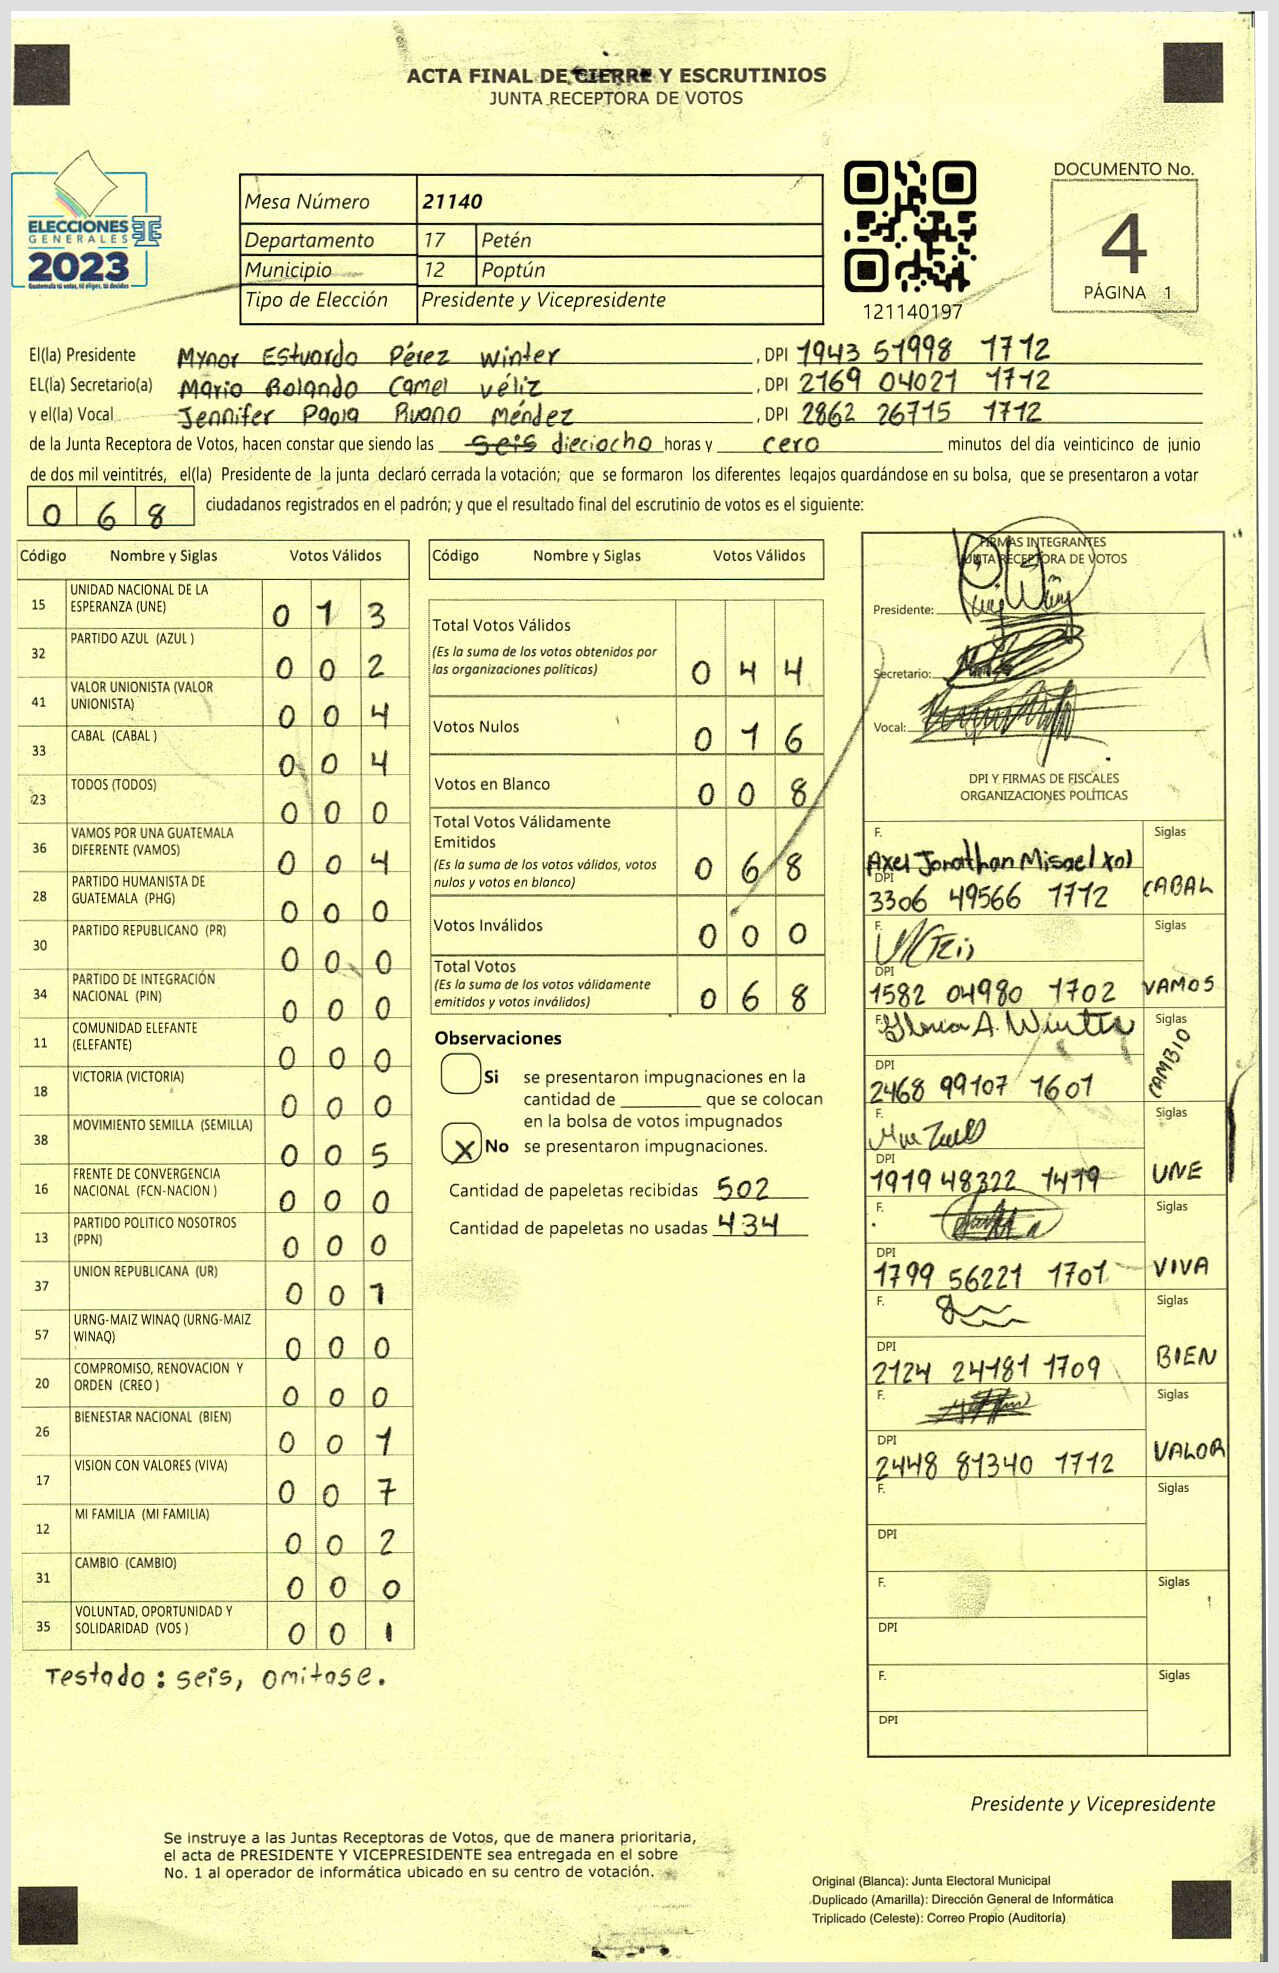 ACTA FINAL DE CIERRE Y ESCRUTINIOS
JUNTA RECEPTORA DE VOTOS
ELECCIONES
GENERALES
2023
Guatemala tú votas, tú eliges, tú decides
Mesa Número 21140
Departamento 17 Petén
Municipio 12 Poptún
Tipo de Elección Presidente y Vicepresidente
121140197
DOCUMENTO No.
4
PÁGINA 1
El(la) Presidente Mynor Estuardo Pérez Winter, DPI 1943 51998 1712
EL(la) Secretario(a) Mario Rolando Camel Véliz, DPI 2169 04021 1712
y el(la) Vocal Jennifer Paola Ruano Méndez, DPI 2862 26715 1712
de la Junta Receptora de Votos, hacen constar que siendo las seis dieciocho horas y cero minutos del día veinticinco de junio
de dos mil veintitrés, el(la) Presidente de la junta declaró cerrada la votación; que se formaron los diferentes legajos guardándose en su bolsa, que se presentaron a votar
0 6 8 ciudadanos registrados en el padrón; y que el resultado final del escrutinio de votos es el siguiente:
Código Nombre y Siglas Votos Válidos
15 UNIDAD NACIONAL DE LA ESPERANZA (UNE) 0 1 3
32 PARTIDO AZUL (AZUL ) 0 0 2
41 VALOR UNIONISTA (VALOR UNIONISTA) 0 0 4
33 CABAL (CABAL ) 0 0 4
23 TODOS (TODOS) 0 0 0
36 VAMOS POR UNA GUATEMALA DIFERENTE (VAMOS) 0 0 4
28 PARTIDO HUMANISTA DE GUATEMALA (PHG) 0 0 0
30 PARTIDO REPUBLICANO (PR) 0 0 0
34 PARTIDO DE INTEGRACIÓN NACIONAL (PIN) 0 0 0
11 COMUNIDAD ELEFANTE (ELEFANTE) 0 0 0
18 VICTORIA (VICTORIA) 0 0 0
38 MOVIMIENTO SEMILLA (SEMILLA) 0 0 5
16 FRENTE DE CONVERGENCIA NACIONAL (FCN-NACION ) 0 0 0
13 PARTIDO POLITICO NOSOTROS (PPN) 0 0 0
37 UNION REPUBLICANA (UR) 0 0 1
57 URNG-MAIZ WINAQ (URNG-MAIZ WINAQ) 0 0 0
20 COMPROMISO, RENOVACION Y ORDEN (CREO ) 0 0 0
26 BIENESTAR NACIONAL (BIEN) 0 0 1
17 VISION CON VALORES (VIVA) 0 0 7
12 MI FAMILIA (MI FAMILIA) 0 0 2
31 CAMBIO (CAMBIO) 0 0 0
35 VOLUNTAD, OPORTUNIDAD Y SOLIDARIDAD (VOS ) 0 0 1
Testado: seis, omitase.
Código Nombre y Siglas Votos Válidos
Total Votos Válidos
(Es la suma de los votos obtenidos por
las organizaciones políticas) 0 4 4
Votos Nulos 0 1 6
Votos en Blanco 0 0 8
Total Votos Válidamente
Emitidos
(Es la suma de los votos válidos, votos
nulos y votos en blanco) 0 6 8
Votos Inválidos 0 0 0
Total Votos
(Es la suma de los votos válidamente
emitidos y votos inválidos) 0 6 8
Observaciones
Si se presentaron impugnaciones en la
cantidad de ________ que se colocan
en la bolsa de votos impugnados
X No se presentaron impugnaciones.
Cantidad de papeletas recibidas 502
Cantidad de papeletas no usadas 434
FIRMAS INTEGRANTES
JUNTA RECEPTORA DE VOTOS
Presidente:
Secretario:
Vocal:
DPI Y FIRMAS DE FISCALES
ORGANIZACIONES POLÍTICAS
F. Siglas
Axel Jonathan Misael Xol
DPI
3306 49566 1712 CABAL
F. Siglas
DPI
1582 04980 1702 VAMOS
F. Gloria A. Winter Siglas
DPI
2468 99107 1601 CAMBIO
F. Siglas
DPI
1919 48322 1419 UNE
F. Siglas
DPI
1799 56221 1701 VIVA
F. Siglas
DPI
2124 24181 1709 BIEN
F. Siglas
DPI
2448 81340 1712 VALOR
F. Siglas
DPI
F. Siglas
DPI
F. Siglas
DPI
Presidente y Vicepresidente
Se instruye a las Juntas Receptoras de Votos, que de manera prioritaria,
el acta de PRESIDENTE Y VICEPRESIDENTE sea entregada en el sobre
No. 1 al operador de informática ubicado en su centro de votación.
Original (Blanca): Junta Electoral Municipal
Duplicado (Amarilla): Dirección General de Informática
Triplicado (Celeste): Correo Propio (Auditoría)